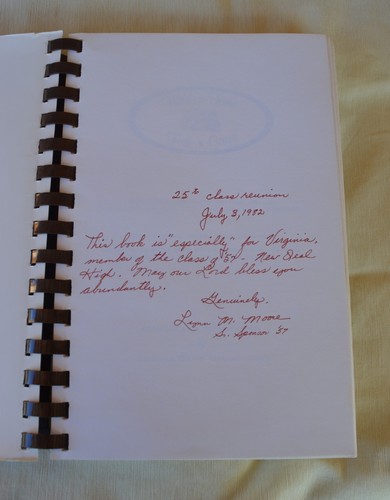 25th class reunion
July 3, 1982
This book is "especially" for Virginia,
member of the class of '57 - New Deal
High. May our Lord bless you
abundantly.
Genuinely,
M. Moore
Sr. Sponsor '57